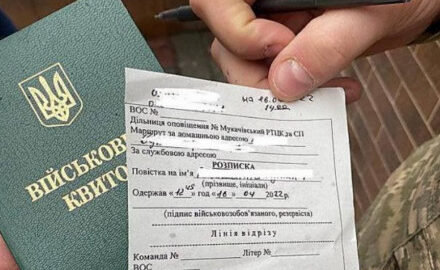 ВІЙСЬКОВ
КВИТО
О
на 16.0 22
14.00
ВОС №
Дільниця оповіщення № Мукачівський РТЦК та СП
Маршрут за домашньою адресою
За службовою адресою
РОЗПИСКА
Повістка на ім'я
(прізвище, ініціали)
Одержав «12⁴⁵» год «16» 04 2022 р.
(підпис військовозобов'язаного, резервіста)
Лінія відрізу
Команда № Літер №
ВОС